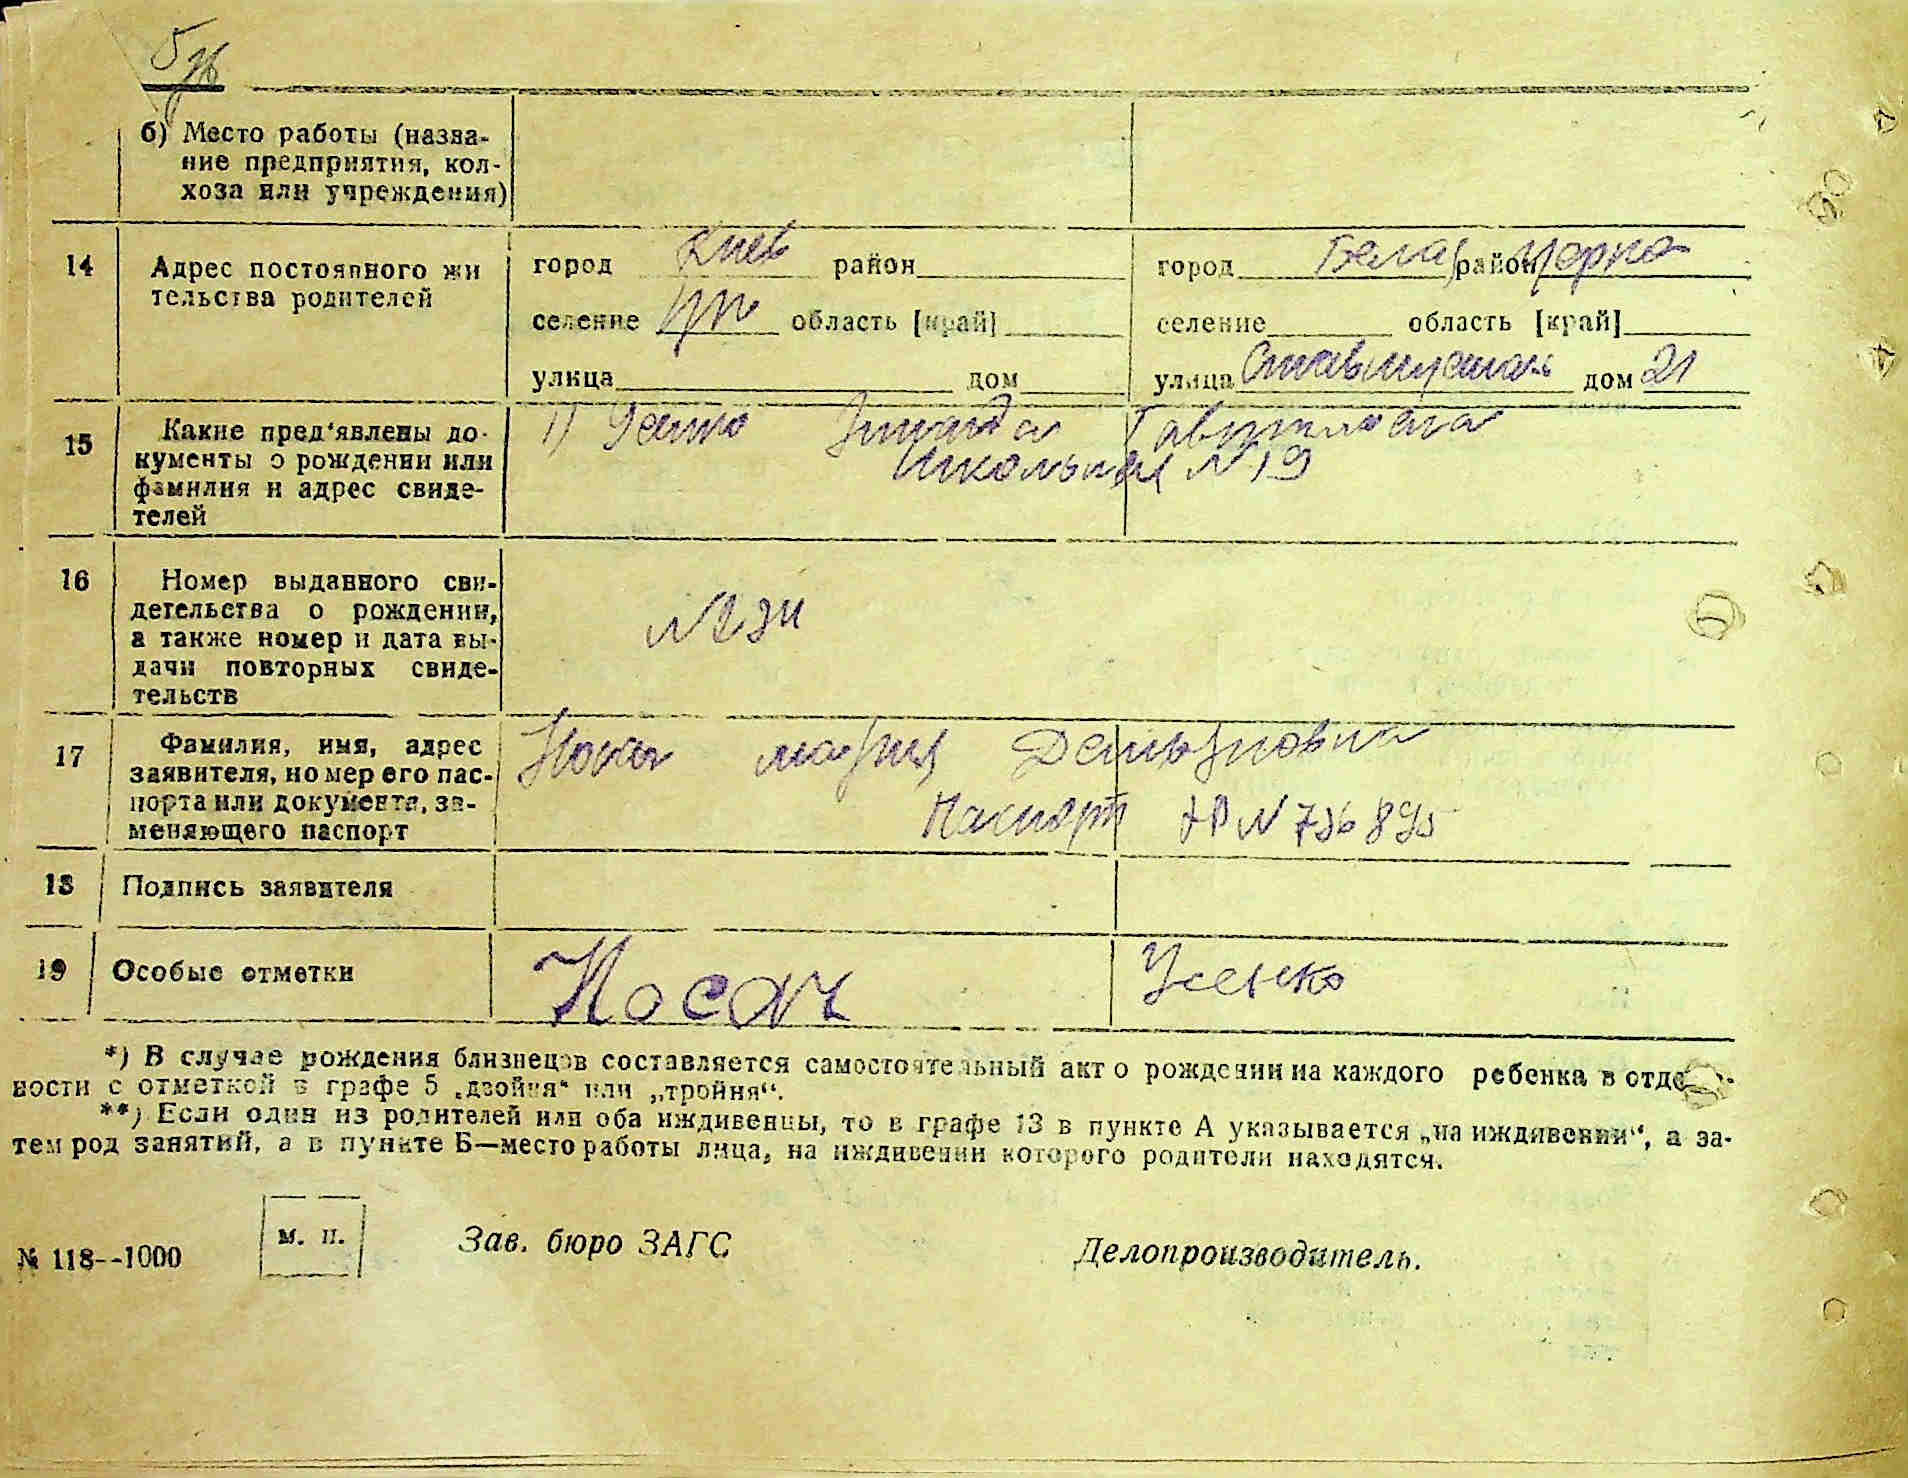 б) Место работы (назва-
ние предприятия, кол-
хоза или учреждения)
14 Адрес постоянного жи
тельства родителей
город Киев район
селение область [край]
улица дом
город Белая район Церковь
селение область [край]
улица дом 21
15 Какие пред'явлены до-
кументы о рождении или
фамилия и адрес свиде-
телей
1) Усенко Зинаида Гавриловна
Школьная №19
16 Номер выданного сви-
детельства о рождении,
а также номер и дата вы-
дачи повторных свиде-
тельств
17 Фамилия, имя, адрес
заявителя, номер его пас-
порта или документа, за-
меняющего паспорт
Носач Мария Демьяновна
Паспорт
18 Подпись заявителя
19 Особые отметки
Носач Усенко
*) В случае рождения близнецов составляется самостоятельный акт о рождении на каждого ребенка в отде
ности с отметкой в графе 5 „двойня“ или „тройня“.
**) Если один из родителей или оба иждивенцы, то в графе 13 в пункте А указывается „на иждивении“, а за-
тем род занятий, а в пункте Б—место работы лица, на иждивении которого родители находятся.
№ 118--1000 м. п. Зав. бюро ЗАГС Делопроизводитель.